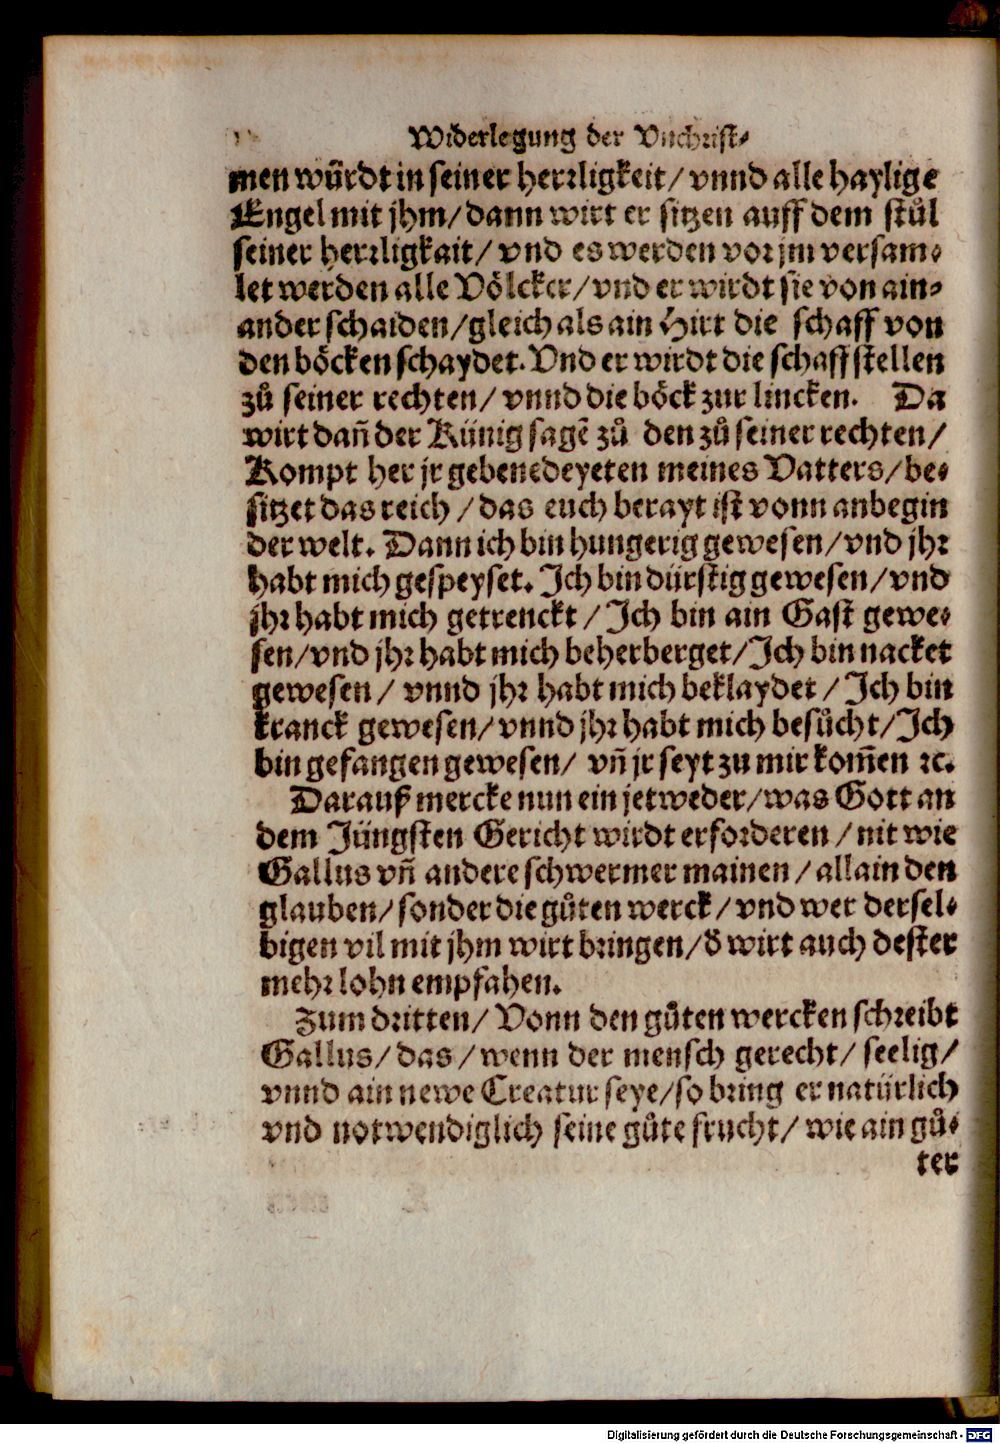 Widerlegung der Vnchrist⸗
men wuͤrdt in seiner herꝛligkeit/ vnnd alle haylige
Engel mit jhm/ dann wirt er sitzen auff dem stůl
seiner herꝛligkait/ vnd es werden voꝛ jm versam⸗
let werden alle Voͤlcker/ vnd er wirdt sie von ain⸗
ander schaiden/ gleich als ain Hirt die schaff von
den boͤcken schaydet. Vnd er wirdt die schaff stellen
zů seiner rechten/ vnnd die boͤck zur lincken. Da
wirt dañ der Künig sagẽ zů den zů seiner rechten/
Kompt her jr gebenedeyeten meines Vatters/ be⸗
sitzet das reich/ das euch berayt ist vonn anbegin
der welt. Dann ich bin hungerig gewesen/ vnd jhꝛ
habt mich gespeyset. Ich bin dürstig gewesen/ vnd
jhꝛ habt mich getrenckt/ Ich bin ain Gast gewe⸗
sen/ vnd jhꝛ habt mich beherberget/ Ich bin nacket
gewesen/ vnnd jhꝛ habt mich beklaydet/ Ich bin
kranck gewesen/ vnnd jhꝛ habt mich besůcht/ Ich
bin gefangen gewesen/ vñ jr seyt zu mir kom̃en ꝛc.
Darauß mercke nun ein jetweder/ was Gott an
dem Jüngsten Gericht wirdt erfoꝛderen/ nit wie
Gallus vñ andere schwermer mainen/ allain den
glauben/ sonder die gůten werck/ vnd wer dersel⸗
bigen vil mit jhm wirt bꝛingen/ d̕ wirt auch dester
mehꝛ lohn empfahen.
Zum dꝛitten/ Vonn den gůten wercken schꝛeibt
Gallus/ das/ wenn der mensch gerecht/ seelig/
vnnd ain newe Creatur seye/ so bꝛing er natürlich
vnd notwendiglich seine gůte frucht/ wie ain gů⸗
ter
Digitalisierung gefördert durch die Deutsche Forschungsgemeinschaft - DFG